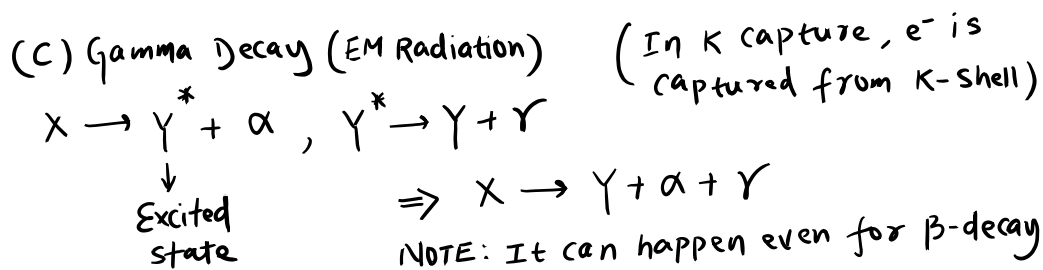 (C) Gamma Decay (EM Radiation)
(In K capture, e⁻ is
captured from K-shell)
X → Y* + α , Y* → Y + γ
↓
Excited
state
⇒ X → Y + α + γ
NOTE: It can happen even for β-decay